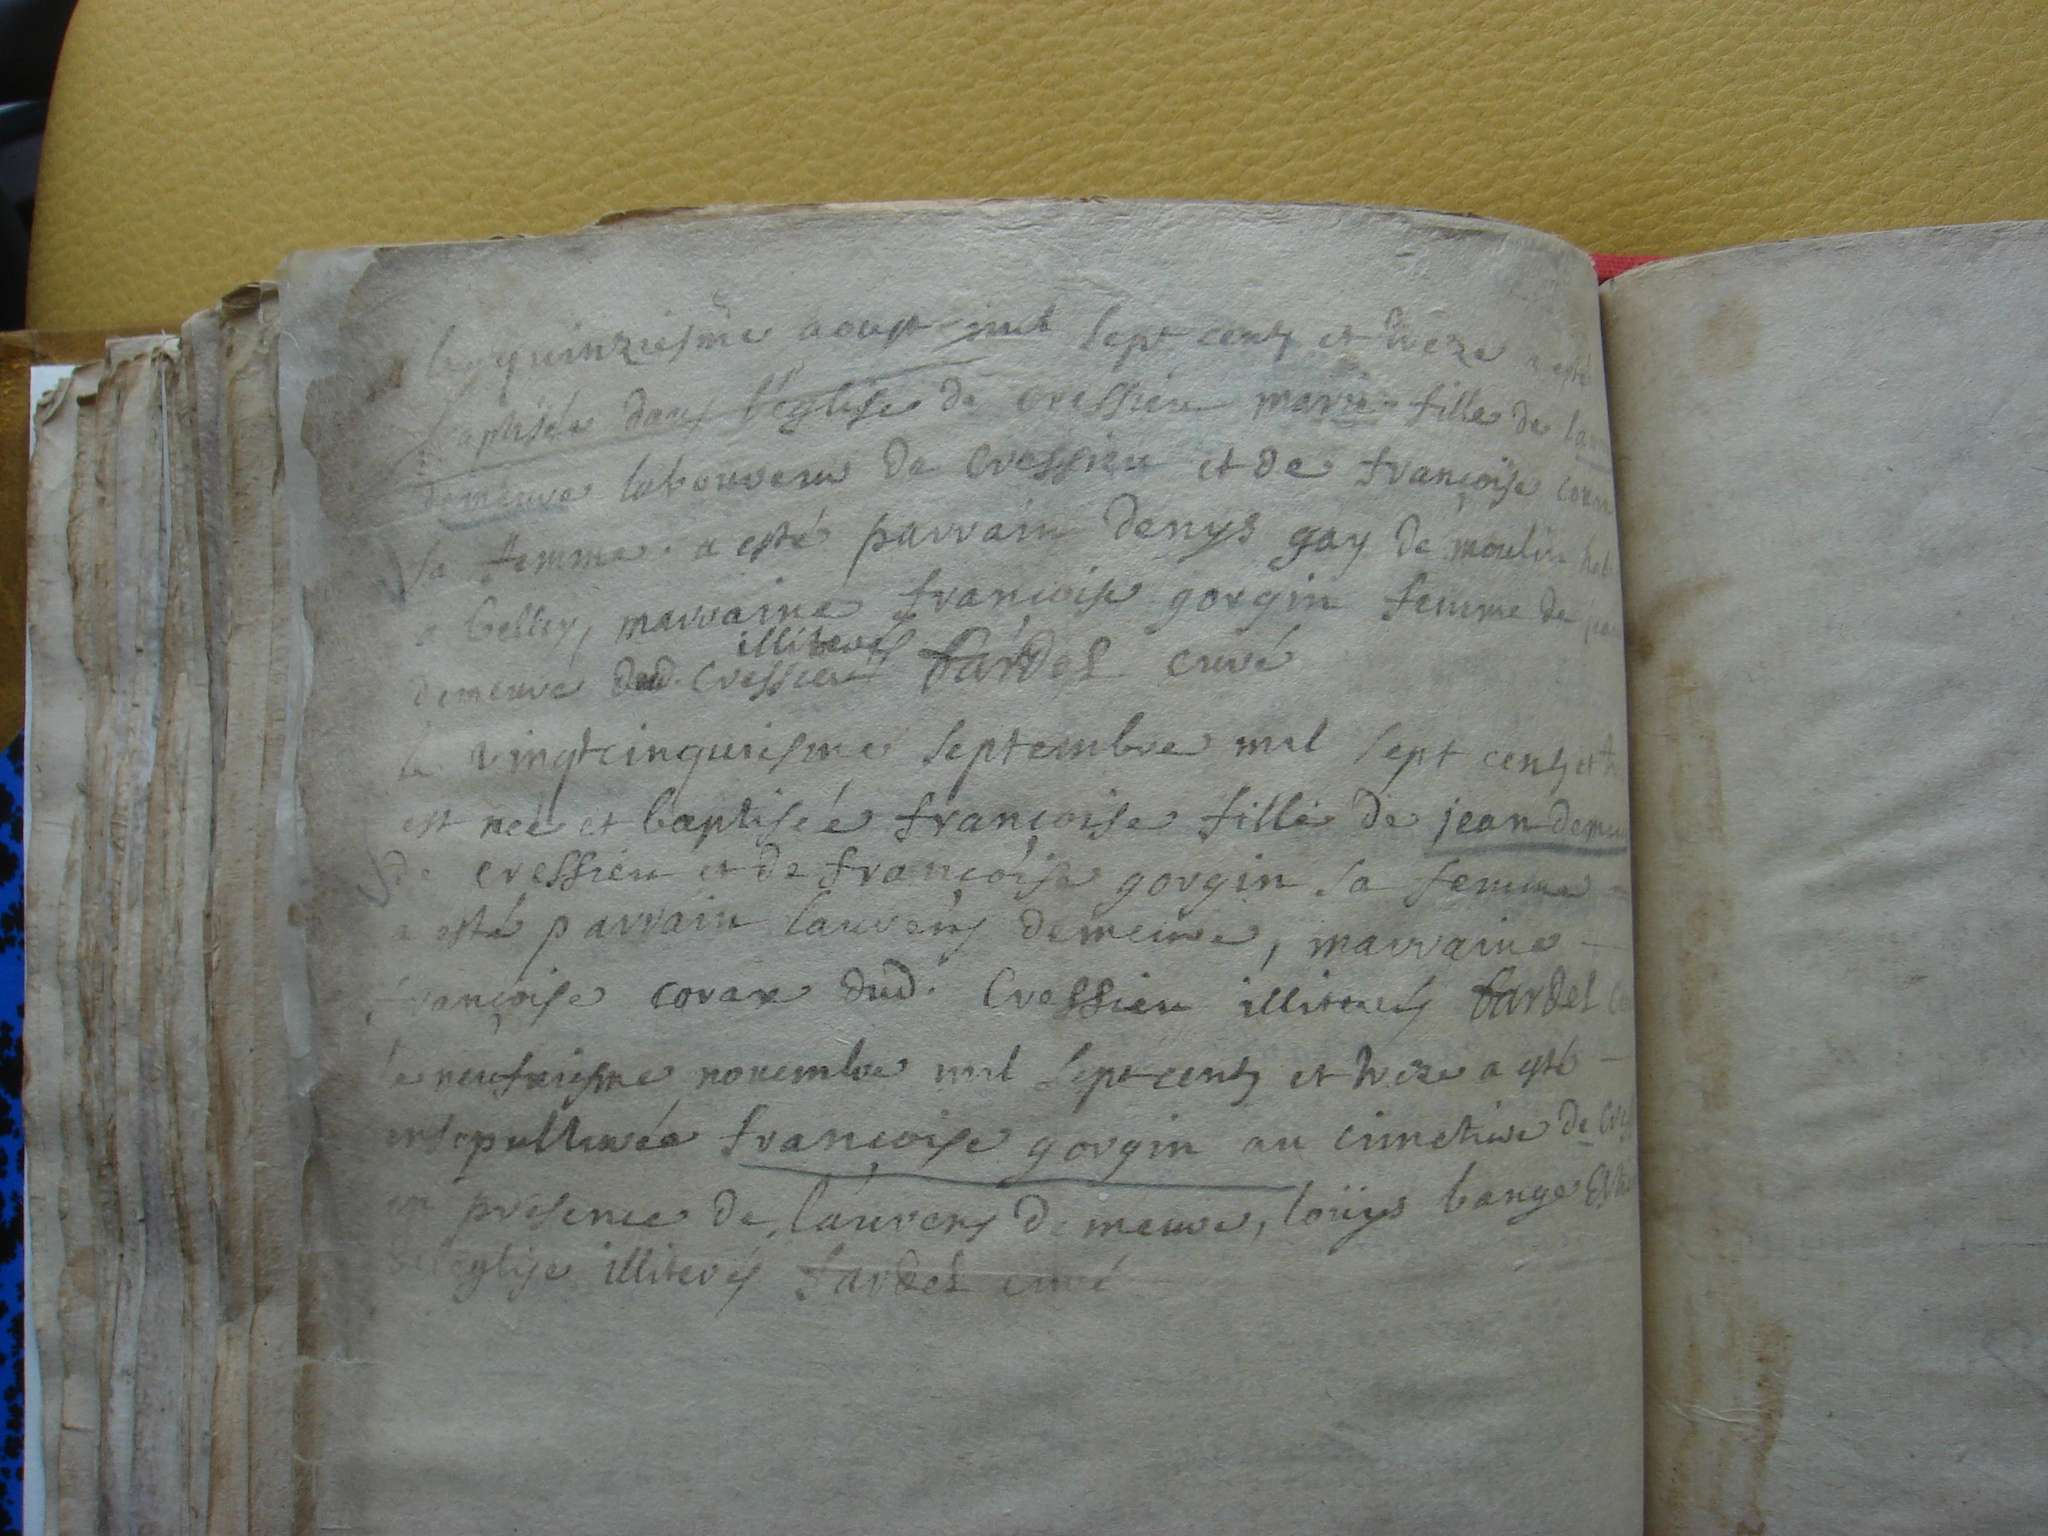 le quinziesme aoust mil sept cents et treze a esté
baptisée dans l'eglise de cressieu marie fille de
demeure laboureur de Cressieu et de françoise
sa femme. a esté parrain denys gay de moulin
a belley, marraine françoise gorgin femme de
demeure dud. Cressieu illiterés fardel curé
le vingtcinquiesme septembre mil sept cents et
est neé et baptiseé françoise fille de jean
de cressieu et de françoise gorgin sa femme
a esté parrain laurens demeure, marraine
françoise corax dud. Cressieu illiterés fardel
le neufviesme novembre mil sept cents et treze a esté
ensepulturée françoise gorgin au cimetiere de
en presence de laurens demeure, loüys bange
eglise illiterés fardel curé